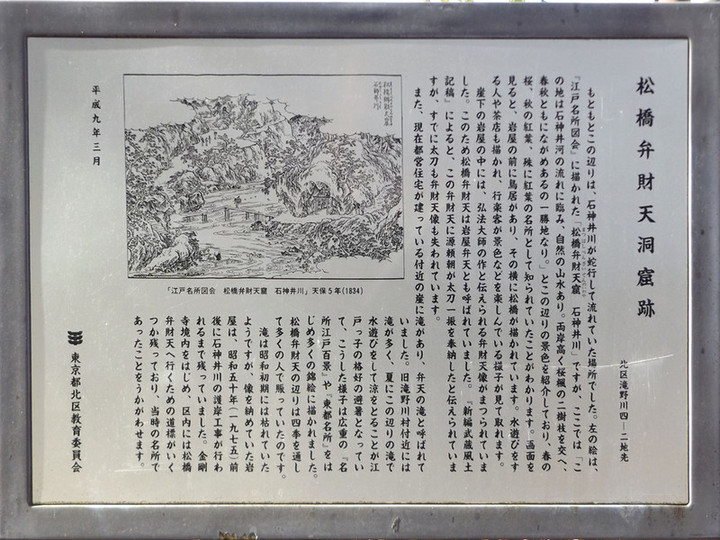 松橋弁財天洞窟跡
北区滝野川四―二地先
もともとこの辺りは、石神井川が蛇行して流れていた場所でした。左の絵は、
『江戸名所図会』に描かれた「松橋弁財天窟 石神井川」ですが、ここでは「こ
の地は石神井河の流れに臨み、自然の山水あり。両岸高く桜楓の二樹枝を交へ、
春秋ともにながめあるの一勝地なり。」とこの辺りの景色を紹介しており、春の
桜、秋の紅葉、殊に紅葉の名所として知られていたことがわかります。画面を
見ると、岩屋の前に鳥居があり、その横に松橋が描かれています。水遊びをす
る人や茶店も描かれ、行楽客が景色などを楽しんでいる様子が見て取れます。
崖下の岩屋の中には、弘法大師の作と伝えられる弁財天像がまつられていま
した。このため松橋弁財天は岩屋弁天とも呼ばれていました。『新編武蔵風土
記稿』によると、この弁財天に源頼朝が太刀一振を奉納したと伝えられていま
すが、すでに太刀も弁財天像も失われています。
また、現在都営住宅が建っている付近の崖に滝があり、弁天の滝と呼ばれて
いました。旧滝野川村付近には
滝が多く、夏にこの辺りの滝で
水遊びをして涼をとることが江
戸っ子の格好の避暑となってい
て、こうした様子は広重の『名
所江戸百景』や『東都名所』をは
じめ多くの錦絵に描かれました。
松橋弁財天の辺りは四季を通し
て多くの人で賑っていたのです。
滝は昭和初期には枯れていた
ようですが、像を納めていた岩
屋は、昭和五十年(一九七五)前
後に石神井川の護岸工事が行わ
れるまで残っていました。金剛
寺境内をはじめ、区内には松橋
弁財天へ行くための道標がいく
つか残っており、当時の名所で
あったことをうかがわせます。
「江戸名所図会 松橋弁財天窟 石神井川」天保5年(1834)
松橋弁財天窟
石神井川
平成九年三月
東京都北区教育委員会